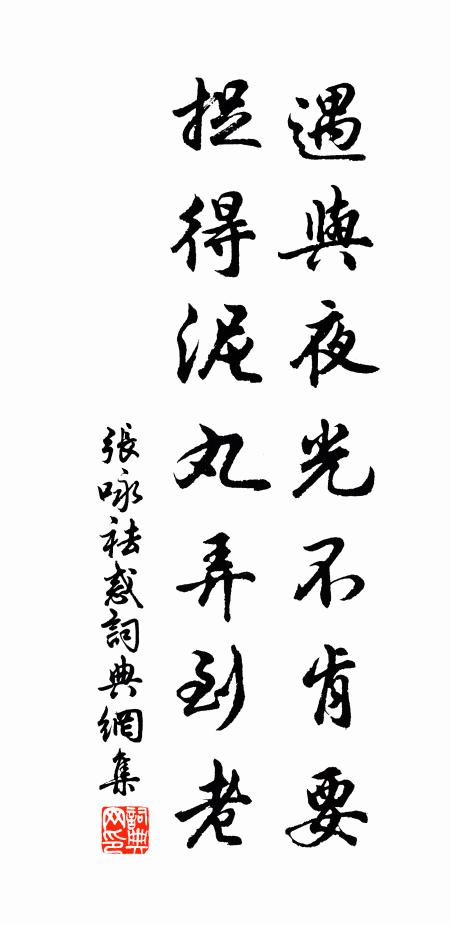 遇與夜光不肯要
捉得泥丸弄到老
張咏祛惑詞典網集
詞典网印